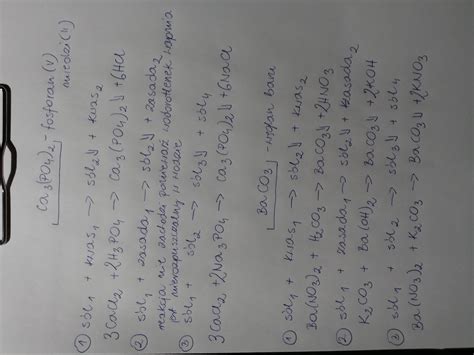 Ca₃(PO₄)₂ - fosforan(V)
① sól₁ + kwas₁ → sól₂↓ + kwas₂
3CaCl₂ + 2H₃PO₄ → Ca₃(PO₄)₂↓ + 6HCl
② sól₁ + zasada₁ → sól₂↓ + zasada₂
reakcja nie zachodzi ponieważ wodorotlenek wapnia
jest nierozpuszczalny w wodzie
③ sól₁ + sól₂ → sól₃↓ + sól₄
3CaCl₂ + 2Na₃PO₄ → Ca₃(PO₄)₂↓ + 6NaCl
BaCO₃ - węglan baru
① sól₁ + kwas₁ → sól₂↓ + kwas₂
Ba(NO₃)₂ + H₂CO₃ → BaCO₃↓ + 2HNO₃
② sól₁ + zasada₁ → sól₂↓ + zasada₂
K₂CO₃ + Ba(OH)₂ → BaCO₃↓ + 2KOH
③ sól₁ + sól₂ → sól₃↓ + sól₄
Ba(NO₃)₂ + K₂CO₃ → BaCO₃↓ + 2KNO₃